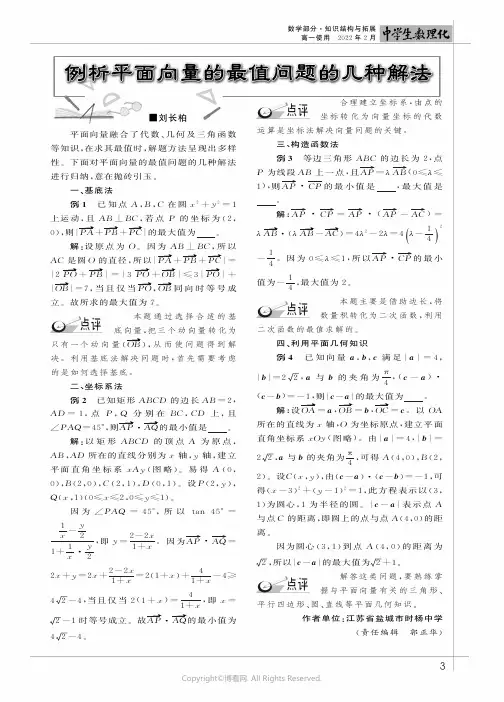 数学部分·知识结构与拓展
高一使用 2022年2月
中学生数理化
例析平面向量的最值问题的几种解法
■刘长柏
平面向量融合了代数、几何及三角函数
等知识,在求其最值时,解题方法呈现出多样
性。下面对平面向量的最值问题的几种解法
进行归纳,意在抛砖引玉。
一、基底法
例1 已知点A,B,C在圆x²+y²=1
上运动,且AB⊥BC,若点P的坐标为(2,
0),则|PA+PB+PC|的最大值为 。
解:设原点为O。因为AB⊥BC,所以
AC是圆O的直径,所以|PA+PB+PC|=
|2PO+PB|=|3PO+OB|≤3|PO|+
|OB|=7,当且仅当PO,OB同向时等号成
立。故所求的最大值为7。
点评 本题通过选择合适的基
底向量,把三个动向量转化为
只有一个动向量(OB),从而使问题得到解
决。利用基底法解决问题时,首先需要考虑
的是如何选择基底。
二、坐标系法
例2 已知矩形ABCD的边长AB=2,
AD=1,点P,Q分别在BC,CD上,且
∠PAQ=45°,则AP·AQ的最小值是 。
解:以矩形ABCD的顶点A为原点,
AB,AD所在的直线分别为x轴,y轴,建立
平面直角坐标系xAy(图略)。易得A(0,
0),B(2,0),C(2,1),D(0,1)。设P(2,y),
Q(x,1)(0≤x≤2,0≤y≤1)。
因为∠PAQ=45°,所以tan 45°=
(1/x-y/2)/(1+1/x·y/2),即y=(2-2x)/(1+x)。因为AP·AQ=
2x+y=2x+(2-2x)/(1+x)=2(1+x)+4/(1+x)-4≥
4√2-4,当且仅当2(1+x)=4/(1+x),即x=
√2-1时等号成立。故AP·AQ的最小值为
4√2-4。
点评 合理建立坐标系,由点的
坐标转化为向量坐标的代数
运算是坐标法解决向量问题的关键。
三、构造函数法
例3 等边三角形ABC的边长为2,点
P为线段AB上一点,且AP=λAB(0≤λ≤
1),则AP·CP的最小值是 ,最大值是
。
解:AP·CP=AP·(AP-AC)=
λAB·(λAB-AC)=4λ²-2λ=4(λ-1/4)²
-1/4。因为0≤λ≤1,所以AP·CP的最小
值为-1/4,最大值为2。
点评 本题主要是借助边长,将
数量积转化为二次函数,利用
二次函数的最值求解的。
四、利用平面几何知识
例4 已知向量a,b,c满足|a|=4,
|b|=2√2,a与b的夹角为π/4,(c-a)·
(c-b)=-1,则|c-a|的最大值为 。
解:设OA=a,OB=b,OC=c。以OA
所在的直线为x轴,O为坐标原点,建立平面
直角坐标系xOy(图略)。由|a|=4,|b|=
2√2,a与b的夹角为π/4,可得A(4,0),B(2,
2)。设C(x,y),由(c-a)·(c-b)=-1,可
得(x-3)²+(y-1)²=1,此方程表示以(3,
1)为圆心,1为半径的圆。|c-a|表示点A
与点C的距离,即圆上的点与点A(4,0)的距
离。
因为圆心(3,1)到点A(4,0)的距离为
√2,所以|c-a|的最大值为√2+1。
点评 解答这类问题,要熟练掌
握与平面向量有关的三角形、
平行四边形、圆、直线等平面几何知识。
作者单位:江苏省盐城市时杨中学
(责任编辑 郭正华)
3
Copyright©博看网. All Rights Reserved.